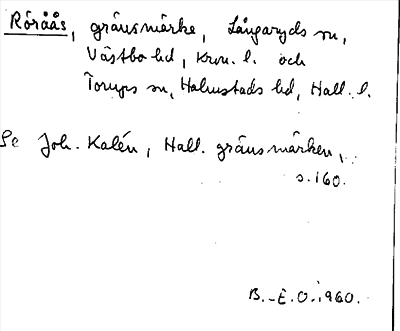 Röråås, gränsmärke, Långaryds sn,
Västbo hd, Kron. l. och
Torups sn, Halmstads hd, Hall. l.
Se Joh. Kalén, Hall. gränsmärken,
s. 160.
B.-E. O. 1960.